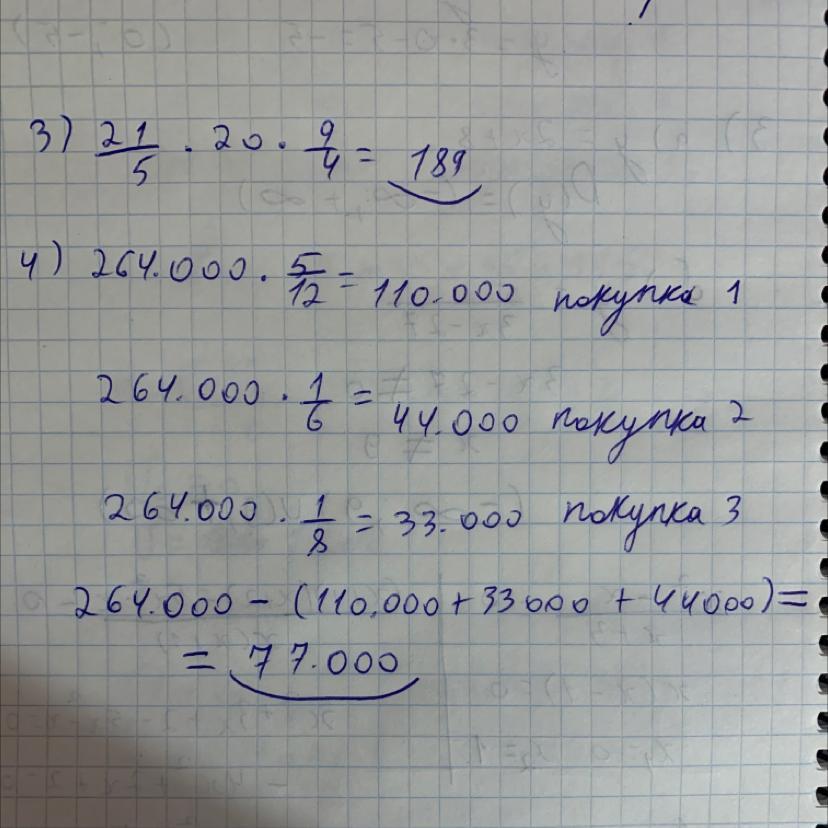 3) 21/5 · 20 · 9/4 = 189
4) 264.000 · 5/12 = 110.000 покупка 1
264.000 · 1/6 = 44.000 покупка 2
264.000 · 1/8 = 33.000 покупка 3
264.000 - (110.000 + 33000 + 44000) =
= 77.000